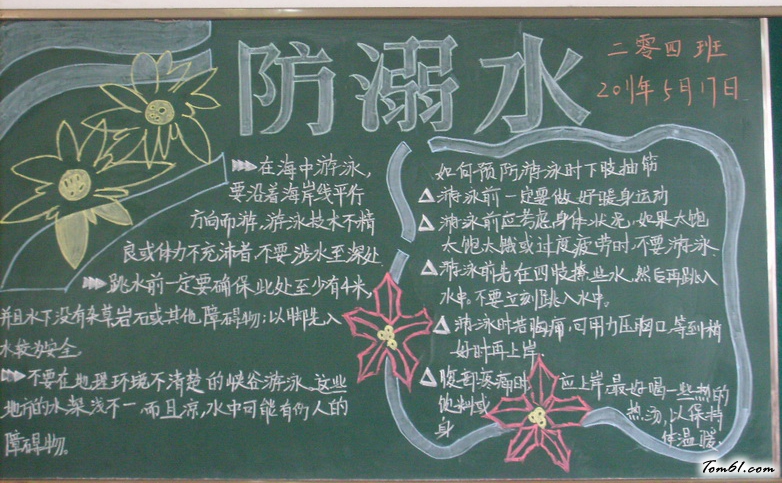 防溺水
二零四班
2011年5月17日
在海中游泳，
要沿着海岸线平行
方向而游，游泳技术不精
良或体力不充沛者，不要涉水至深处
跳水前一定要确保此处至少有4米，
并且水下没有杂草岩石或其他障碍物；以脚先入
水较为安全。
不要在地理环境不清楚的峡谷游泳。这些
地方的水深浅不一，而且凉，水中可能有伤人的
障碍物。
如何预防游泳时下肢抽筋
游泳前一定要做好暖身运动
游泳前应考虑身体状况，如果太饱
太饱太饿或过度疲劳时，不要游泳
游泳前先在四肢撩些水，然后再跳入
水中。不要立刻跳入水中。
游泳时若胸痛，可用力压胸口，等到稍
好时再上岸。
腹部疼痛时 应上岸，最好喝一些热的
饮料或 热汤，以保持
身 体温暖。
Tom61.com